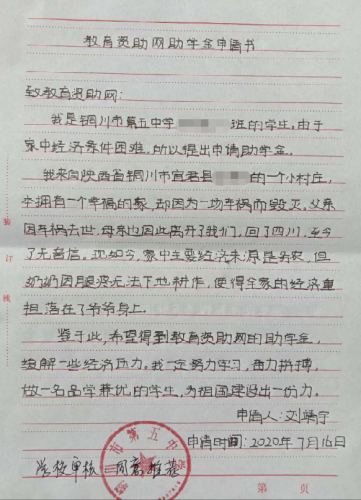 教育资助网助学金申请书
致教育资助网：
我是铜川市第五中学 班的学生，由于
家中经济条件困难，所以提出申请助学金。
我来自陕西省铜川市宜君县 的一个小村庄，
幸拥有一个幸福的家，却因为一场车祸而毁灭。父亲
因车祸去世，母亲也因此离开了我们，回了四川，至今
了无音信。现如今，家中主要经济来源是务农，但
奶奶因腿疾无法下地耕作，使得全家的经济重
担落在了爷爷身上。
鉴于此，希望得到教育资助网的助学金，
缓解一些经济压力。我一定努力学习，奋力拼搏，
做一名品学兼优的学生，为祖国建设出一份力。
申请人：刘
申请时间：2020年7月16日
学校审核
市第五中学
装
订
线
第 页